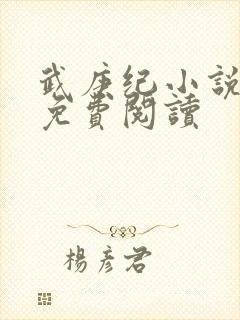 武庚纪小説
免費閲讀
楊彦君